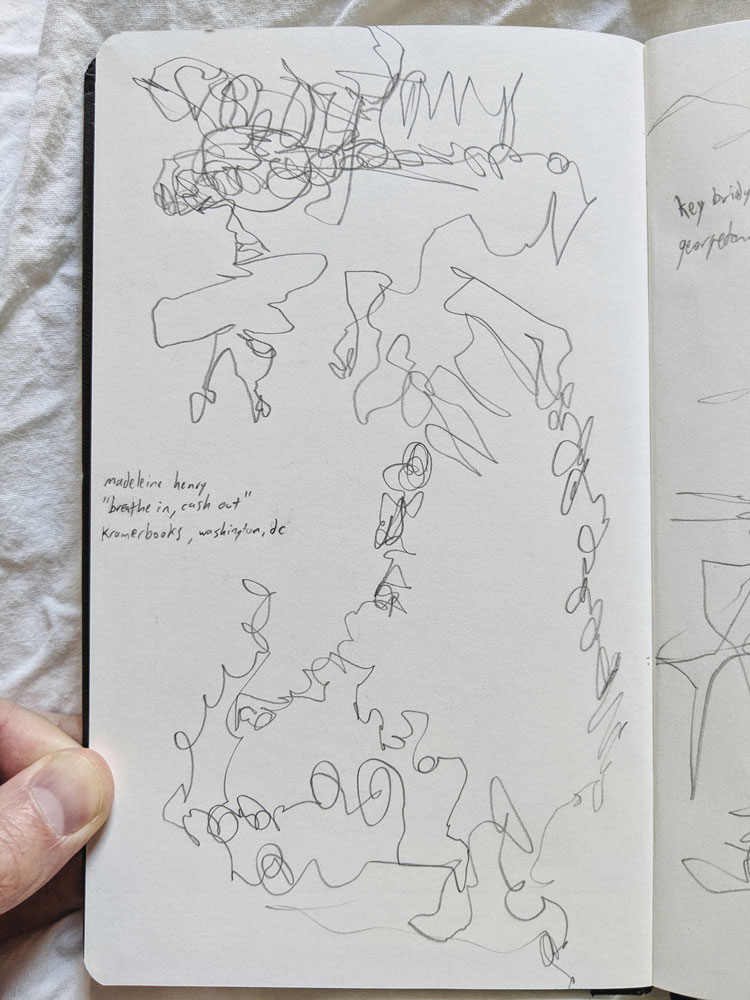 madeleine henry
"breathe in, cash out"
kramerbooks, washington, dc
key